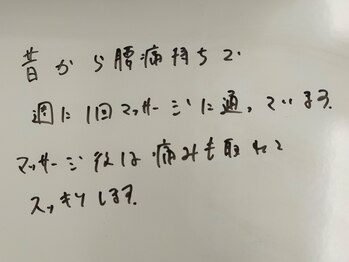 昔から腰痛持ちで
週に1回マッサージに通っています.
マッサージ後は痛みも取れて
スッキリします.